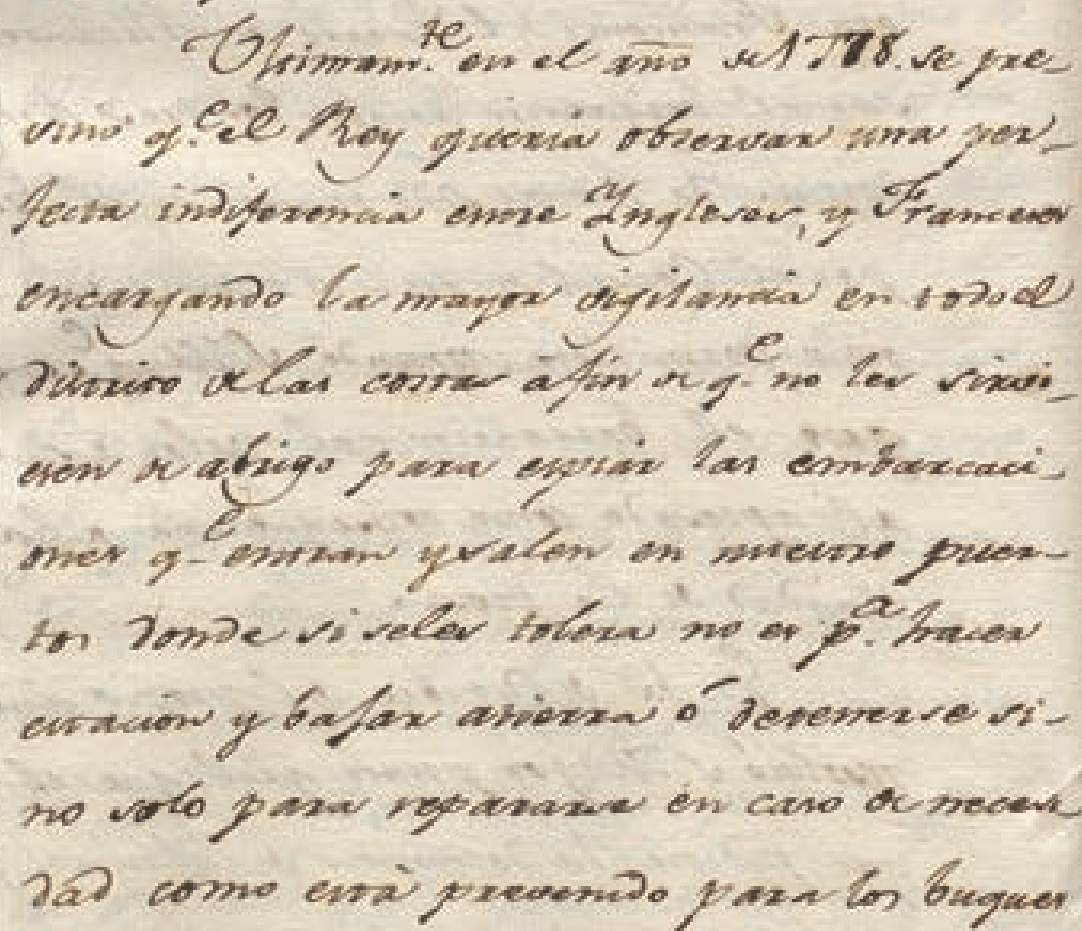 Ultimam.te en el año de 1778. se pre-
vino q.e el Rey queria observar una per-
fecta indiferencia entre Yngleses, y Franceses
encargando la mayor vigilancia en todo el
distrito de las costas á fin de q.e no les sirvi-
esen de abrigo para espiar las embarcaci-
ones q.e entran y salen en nuestros puer-
tos donde si se les tolera no es p.a hacer
estacion y bajar atierra ó detenerse si-
no solo para repararse en caso de necesi
dad como está prevenido para los buques